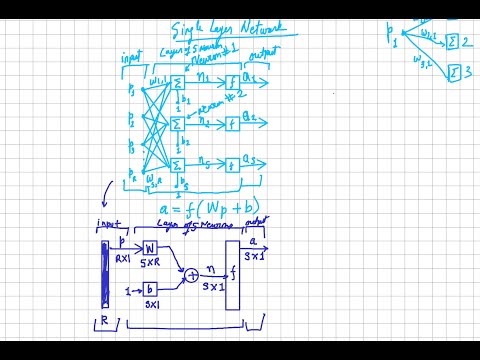 Single Layer Network
Layer of S Neuron
input Neuron #1 output
P1 W1,1 Σ n1 f a1
b1
1 neuron #2
P2 Σ n2 f a2
b2
1
P3
Σ nS f aS
PR WS,R bS
1
a = f(Wp+b)
input Layer of S Neurons output
p W a
R×1 S×R S×1
+ n f
S×1
1 b
S×1
R
P1 Σ 2
W3,1 Σ 3